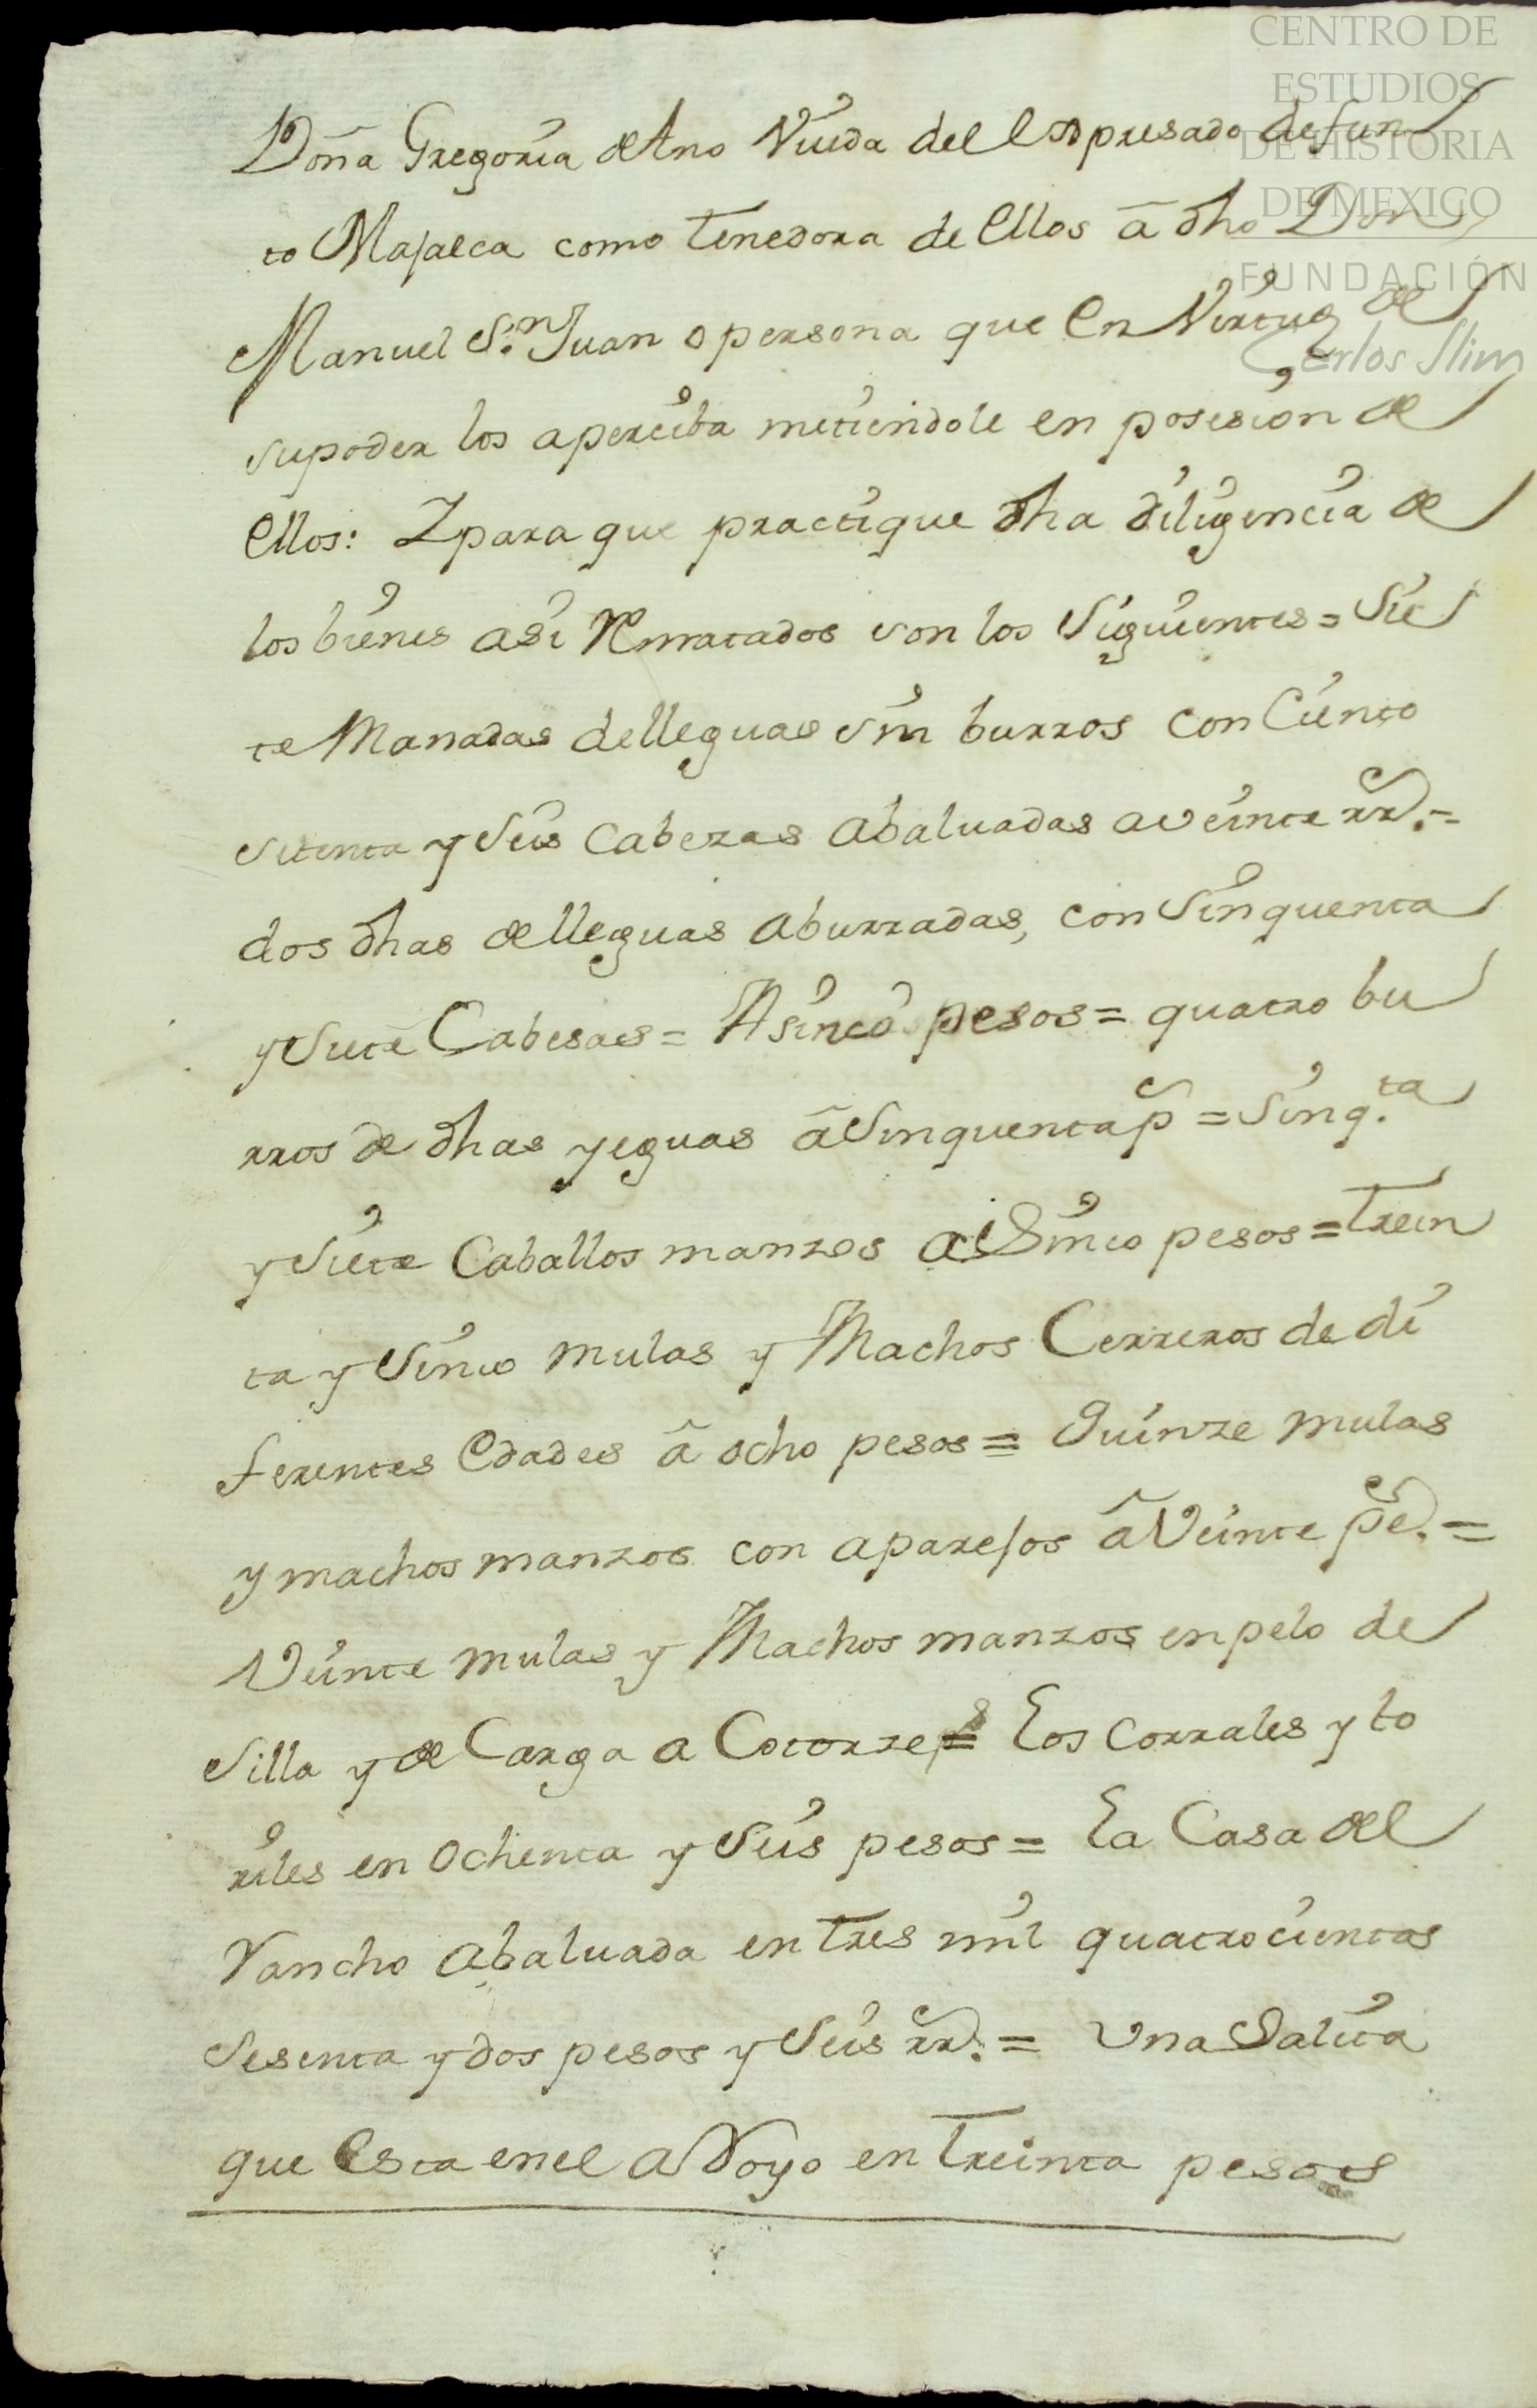 CENTRO DE
ESTUDIOS
DE HISTORIA
DE MEXICO
FUNDACIÓN
Carlos Slim
Doña Gregoria de Ano Viuda del Expresado defun
to Majalca como tenedora de Ellos â dho Don
Manuel Sn. Juan o persona que En Virtud de
su poder los aperciba metiendole en posesion de
Ellos: Y para que practique dha diligencia de
los bienes asi Rematados son los Siguientes = Sie
te Manadas de lleguas sin burros con Ciento
setenta y Seis Cabezas abaluadas a veinte rrs. =
dos dhas de lleguas aburradas, con Sinquenta
y Siete Cabesas = A sinco pesos = quatro bu
rros de dhas yeguas â Sinquenta ps = Sinq.ta
y Siete Caballos manzos a Sinco pesos = trein
ta y Sinco mulas y Machos Cerreros de di
ferentes Edades â ocho pesos = Quinze mulas
y machos manzos con aparejos â Veinte ps. =
Veinte mulas y Machos manzos en pelo de
Silla y de Carga a Catorze ps = Los Corrales y to
riles en Ochenta y Seis pesos = La Casa del
Rancho abaluada en tres mil quatrocientos
Sesenta y dos pesos y Seis rrs. = Una Salita
que Esta en el aRoyo en treinta pesos